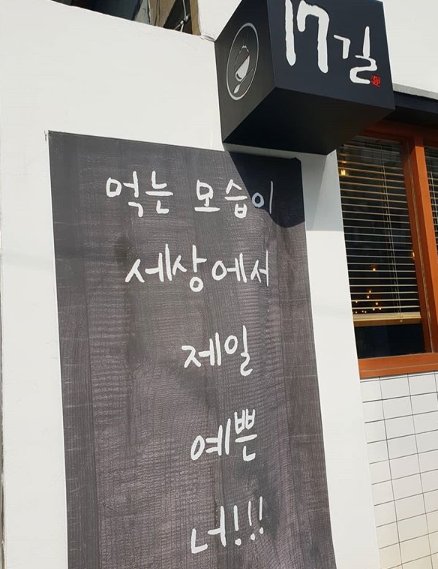 17길
먹는 모습이
세상에서
제일
예쁜
너!!!